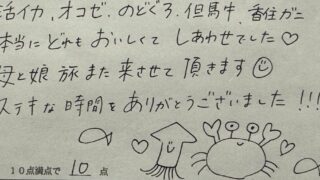 活イカ、オコゼ、のどぐろ、但馬牛、香住ガニ
本当にどれもおいしくてしあわせでした♡
母と娘旅また来させて頂きます☺
ステキな時間をありがとうございました!!!
10点満点で 10 点